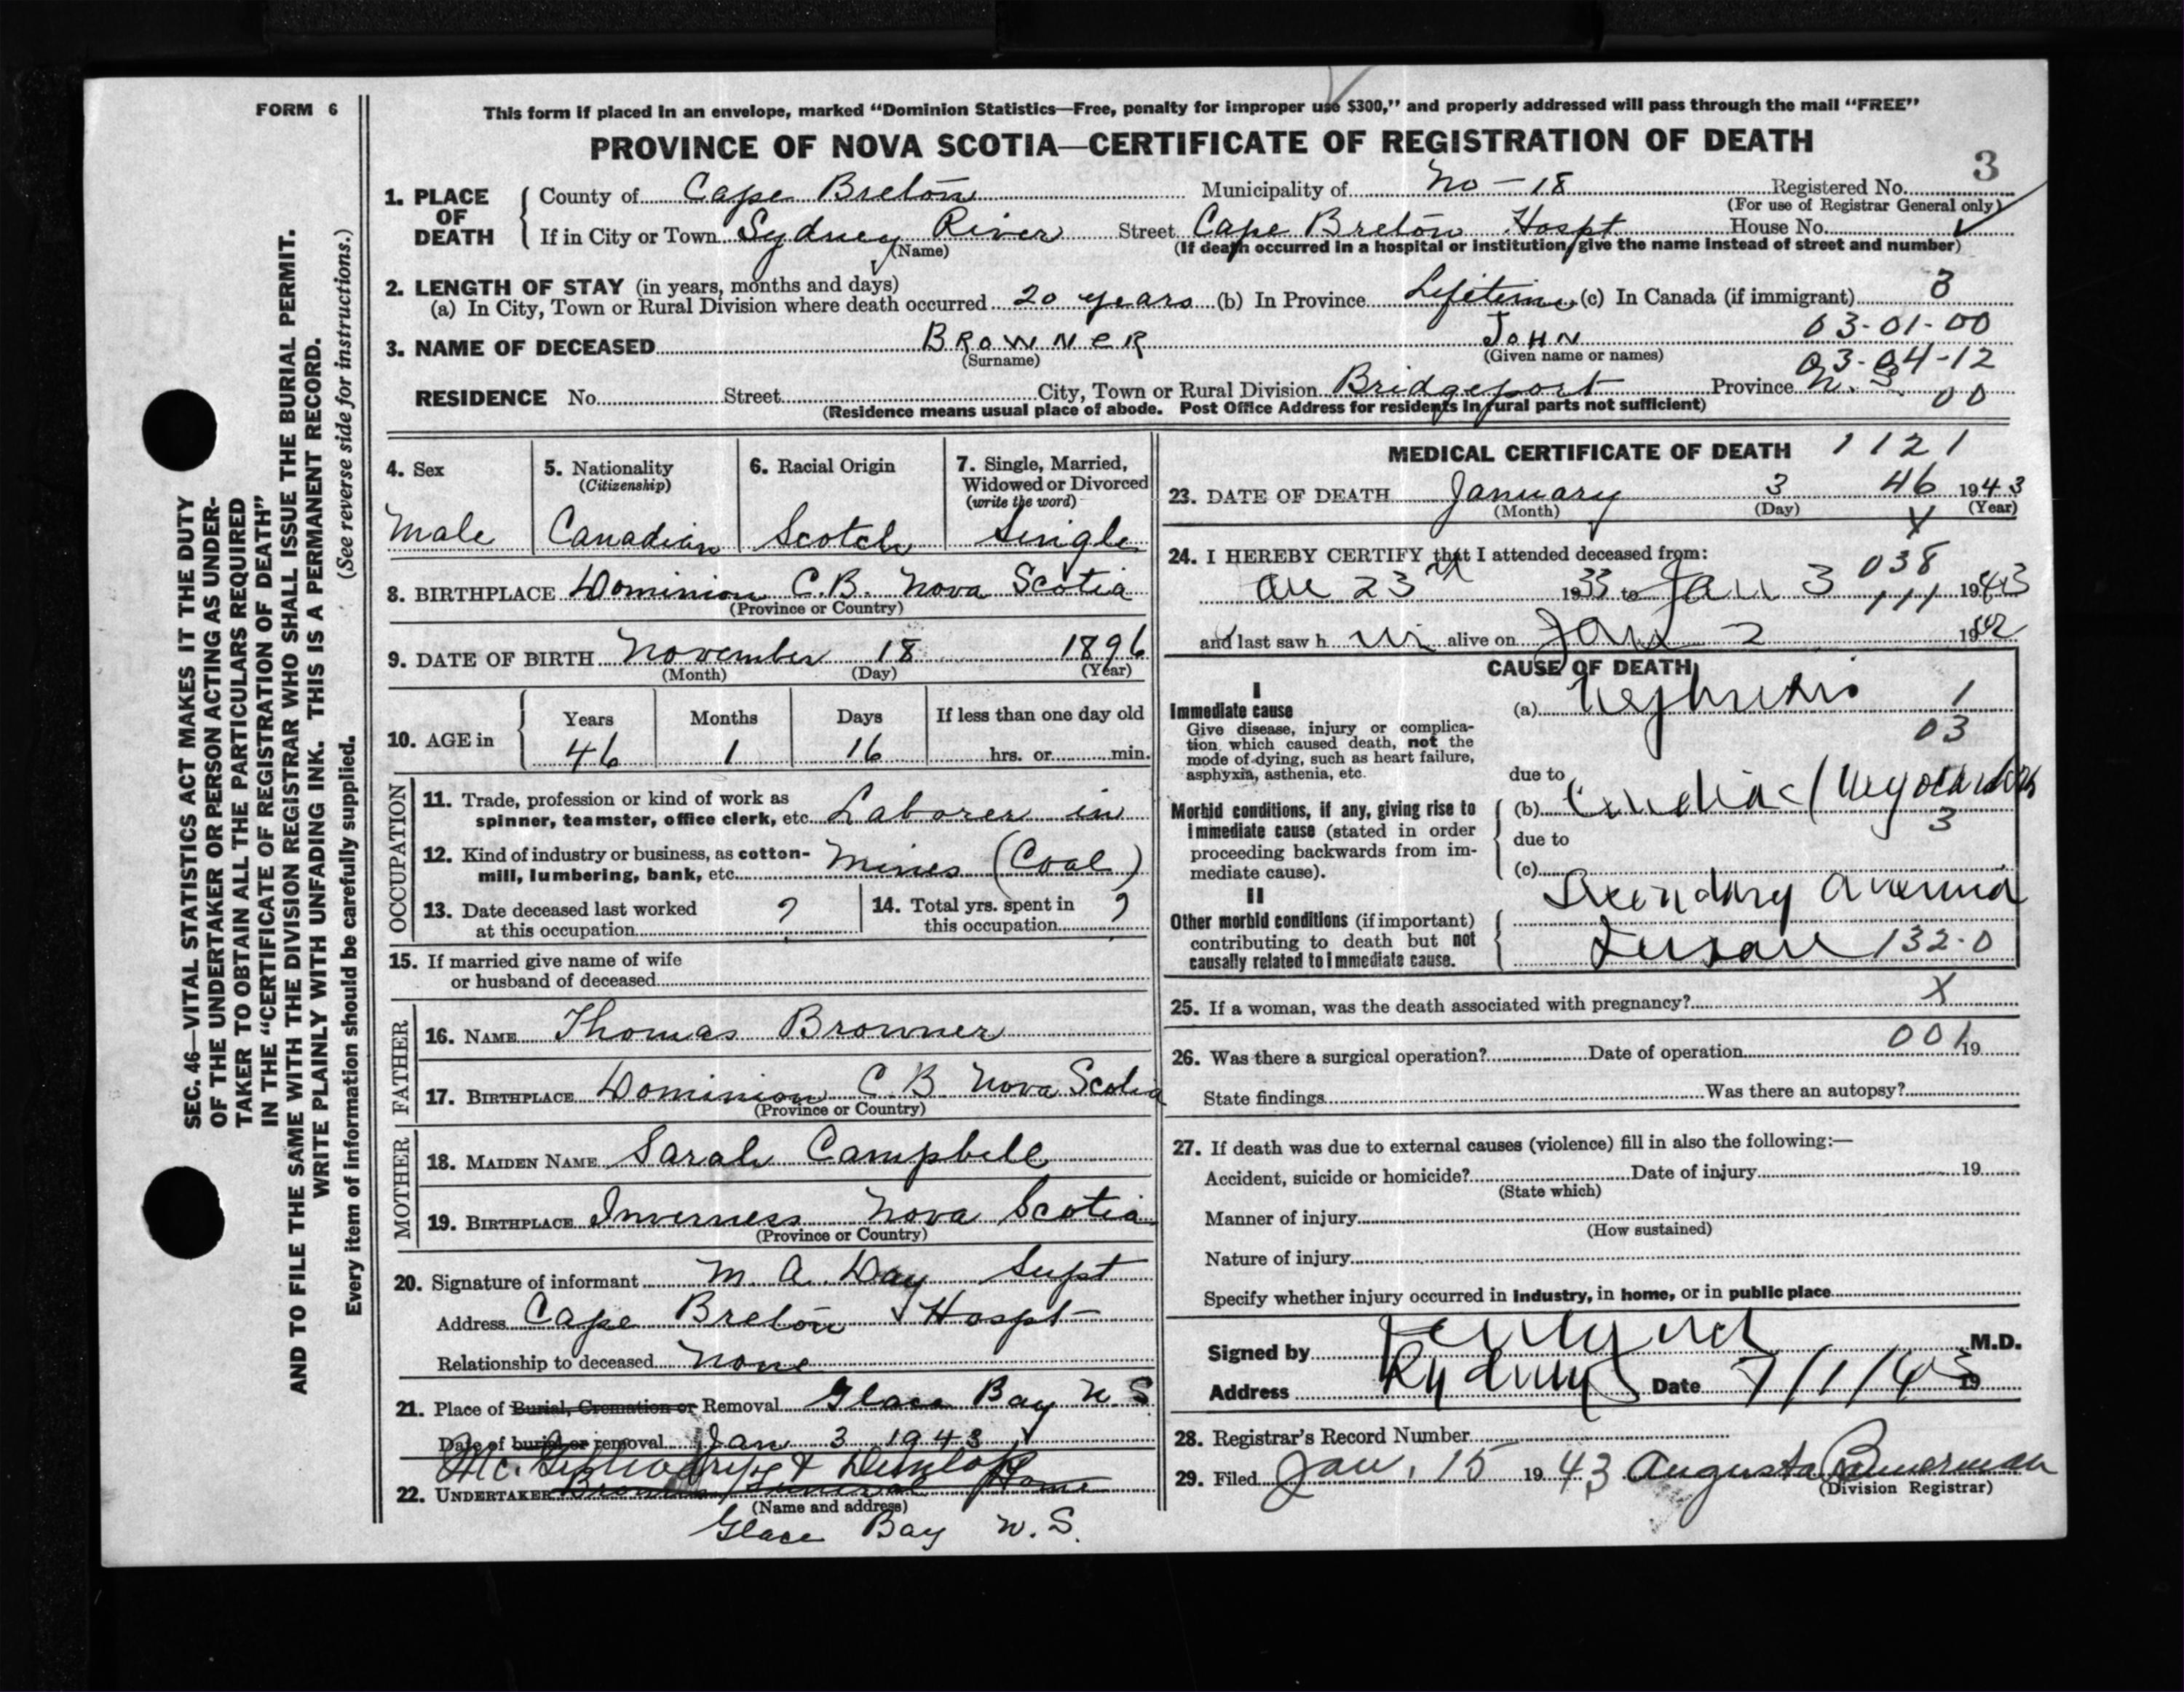 FORM 6
This form if placed in an envelope, marked “Dominion Statistics—Free, penalty for improper use $300,” and properly addressed will pass through the mail “FREE”
PROVINCE OF NOVA SCOTIA—CERTIFICATE OF REGISTRATION OF DEATH
3
1. PLACE OF DEATH
County of Cape Breton Municipality of No - 18 Registered No.
(For use of Registrar General only)
If in City or Town Sydney River Street Cape Breton Hospt House No.
(Name) (If death occurred in a hospital or institution, give the name instead of street and number)
2. LENGTH OF STAY (in years, months and days)
(a) In City, Town or Rural Division where death occurred 20 years (b) In Province Lifetime (c) In Canada (if immigrant) 3
03-01-00
3. NAME OF DECEASED BROWNER JOHN
(Surname) (Given name or names)
03-04-12
RESIDENCE No. Street City, Town or Rural Division Bridgeport Province N. S. 00
(Residence means usual place of abode. Post Office Address for residents in rural parts not sufficient)
4. Sex
Male
5. Nationality
(Citizenship)
Canadian
6. Racial Origin
Scotch
7. Single, Married,
Widowed or Divorced
(write the word)
Single
8. BIRTHPLACE Dominion C.B. Nova Scotia
(Province or Country)
9. DATE OF BIRTH November 18 1896
(Month) (Day) (Year)
10. AGE in
Years Months Days If less than one day old
46 1 16 hrs. or min.
OCCUPATION
11. Trade, profession or kind of work as
spinner, teamster, office clerk, etc. Laborer in
12. Kind of industry or business, as cotton-
mill, lumbering, bank, etc. Mines (Coal)
13. Date deceased last worked
at this occupation ?
14. Total yrs. spent in
this occupation ?
15. If married give name of wife
or husband of deceased
FATHER
16. NAME Thomas Browner
17. BIRTHPLACE Dominion C B Nova Scotia
(Province or Country)
MOTHER
18. MAIDEN NAME Sarah Campbell
19. BIRTHPLACE Inverness Nova Scotia
(Province or Country)
20. Signature of informant M. A. Day Supt
Address Cape Breton Hospt
Relationship to deceased None
21. Place of Burial, Cremation or Removal Glace Bay N. S.
Date of burial or removal Jan 3 1943
& Dunlop
22. UNDERTAKER Funeral Home
(Name and address)
Glace Bay N. S.
MEDICAL CERTIFICATE OF DEATH 1121
23. DATE OF DEATH January 3 46 1943
(Month) (Day) (Year)
X
24. I HEREBY CERTIFY that I attended deceased from:
038
23 1933 to Jan 3 111 1943
and last saw h alive on Jan 2 19
CAUSE OF DEATH
I
Immediate cause
Give disease, injury or complica-
tion which caused death, not the
mode of dying, such as heart failure,
asphyxia, asthenia, etc.
(a) Nephritis 1
03
due to
Morbid conditions, if any, giving rise to
immediate cause (stated in order
proceeding backwards from im-
mediate cause).
(b) Cardiac
3
due to
(c)
II
Other morbid conditions (if important)
contributing to death but not
causally related to immediate cause.
Secondary
132.0
25. If a woman, was the death associated with pregnancy? X
001
26. Was there a surgical operation? Date of operation 19
State findings Was there an autopsy?
27. If death was due to external causes (violence) fill in also the following:—
Accident, suicide or homicide? Date of injury 19
(State which)
Manner of injury
(How sustained)
Nature of injury
Specify whether injury occurred in industry, in home, or in public place
Signed by M.D.
Address Sydney Date 7/1/43 19
28. Registrar's Record Number
29. Filed Jan. 15 1943 Augusta
(Division Registrar)
SEC. 46—VITAL STATISTICS ACT MAKES IT THE DUTY
OF THE UNDERTAKER OR PERSON ACTING AS UNDER-
TAKER TO OBTAIN ALL THE PARTICULARS REQUIRED
IN THE “CERTIFICATE OF REGISTRATION OF DEATH”
AND TO FILE THE SAME WITH THE DIVISION REGISTRAR WHO SHALL ISSUE THE BURIAL PERMIT.
WRITE PLAINLY WITH UNFADING INK. THIS IS A PERMANENT RECORD.
Every item of information should be carefully supplied. (See reverse side for instructions.)